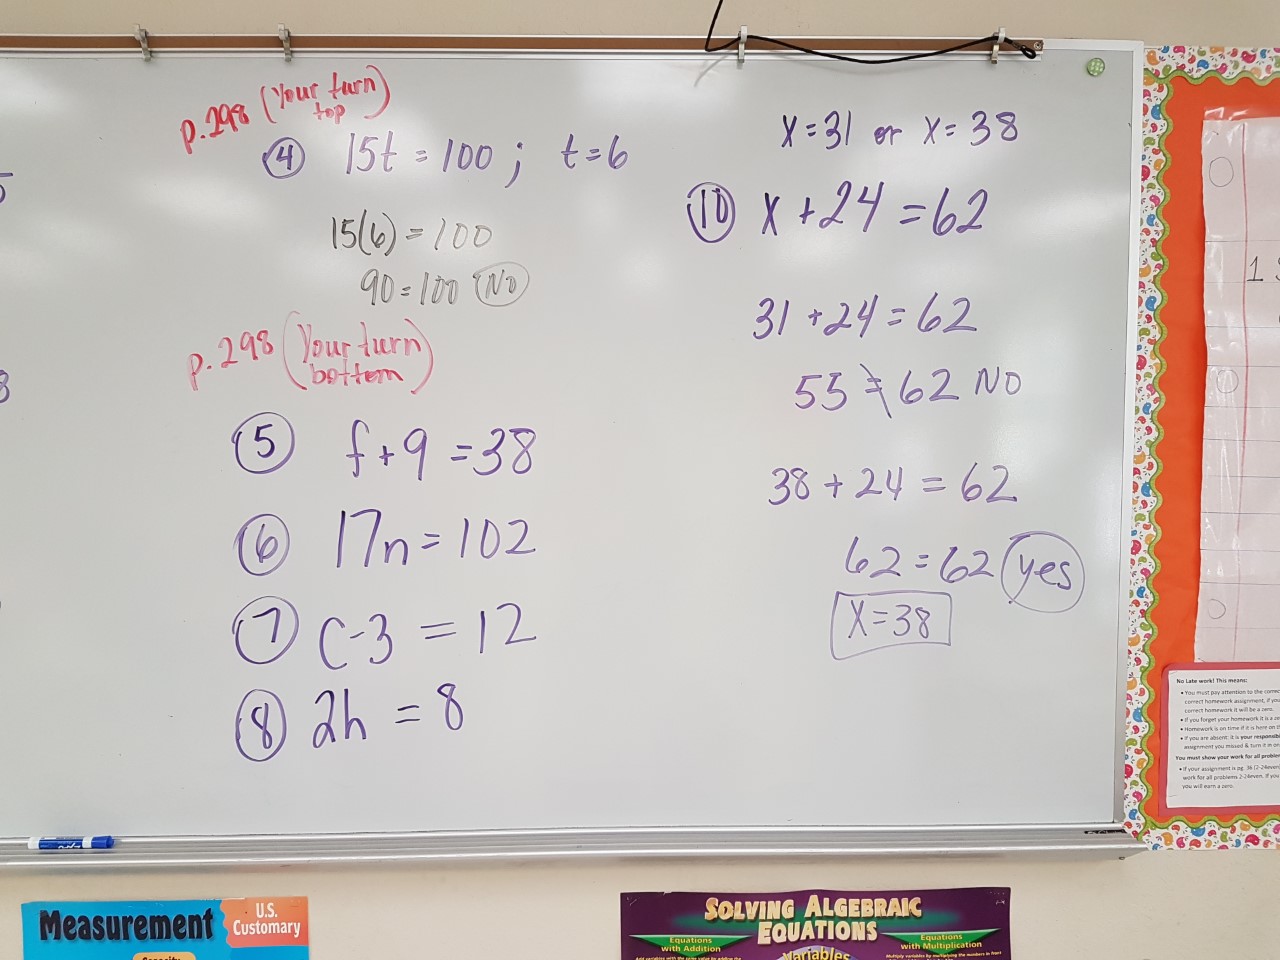 p.298 (Your turn top)
④ 15t = 100 ; t=6
15(6) = 100
90 = 100 No
p.298 (Your turn bottom)
⑤ f+9 = 38
⑥ 17n = 102
⑦ c-3 = 12
⑧ 2h = 8
x=31 or x=38
⑩ x + 24 = 62
31 + 24 = 62
55 ≠ 62 NO
38 + 24 = 62
62 = 62 yes
x=38
No Late work! This means:
• You must pay attention to the
correct homework assignment, if
correct homework it will be a zero.
• If you forget your homework it is a
• Homework is on time if it is here on
• If you are absent; it is your
assignment you missed & turn it in
You must show your work for all
• If your assignment is pg. 36 (2-24even)
work for all problems 2-24even. If
you will earn a zero.
Measurement
U.S.
Customary
Capacity
SOLVING ALGEBRAIC
EQUATIONS
Equations
with Addition
Variables
Equations
with Multiplication